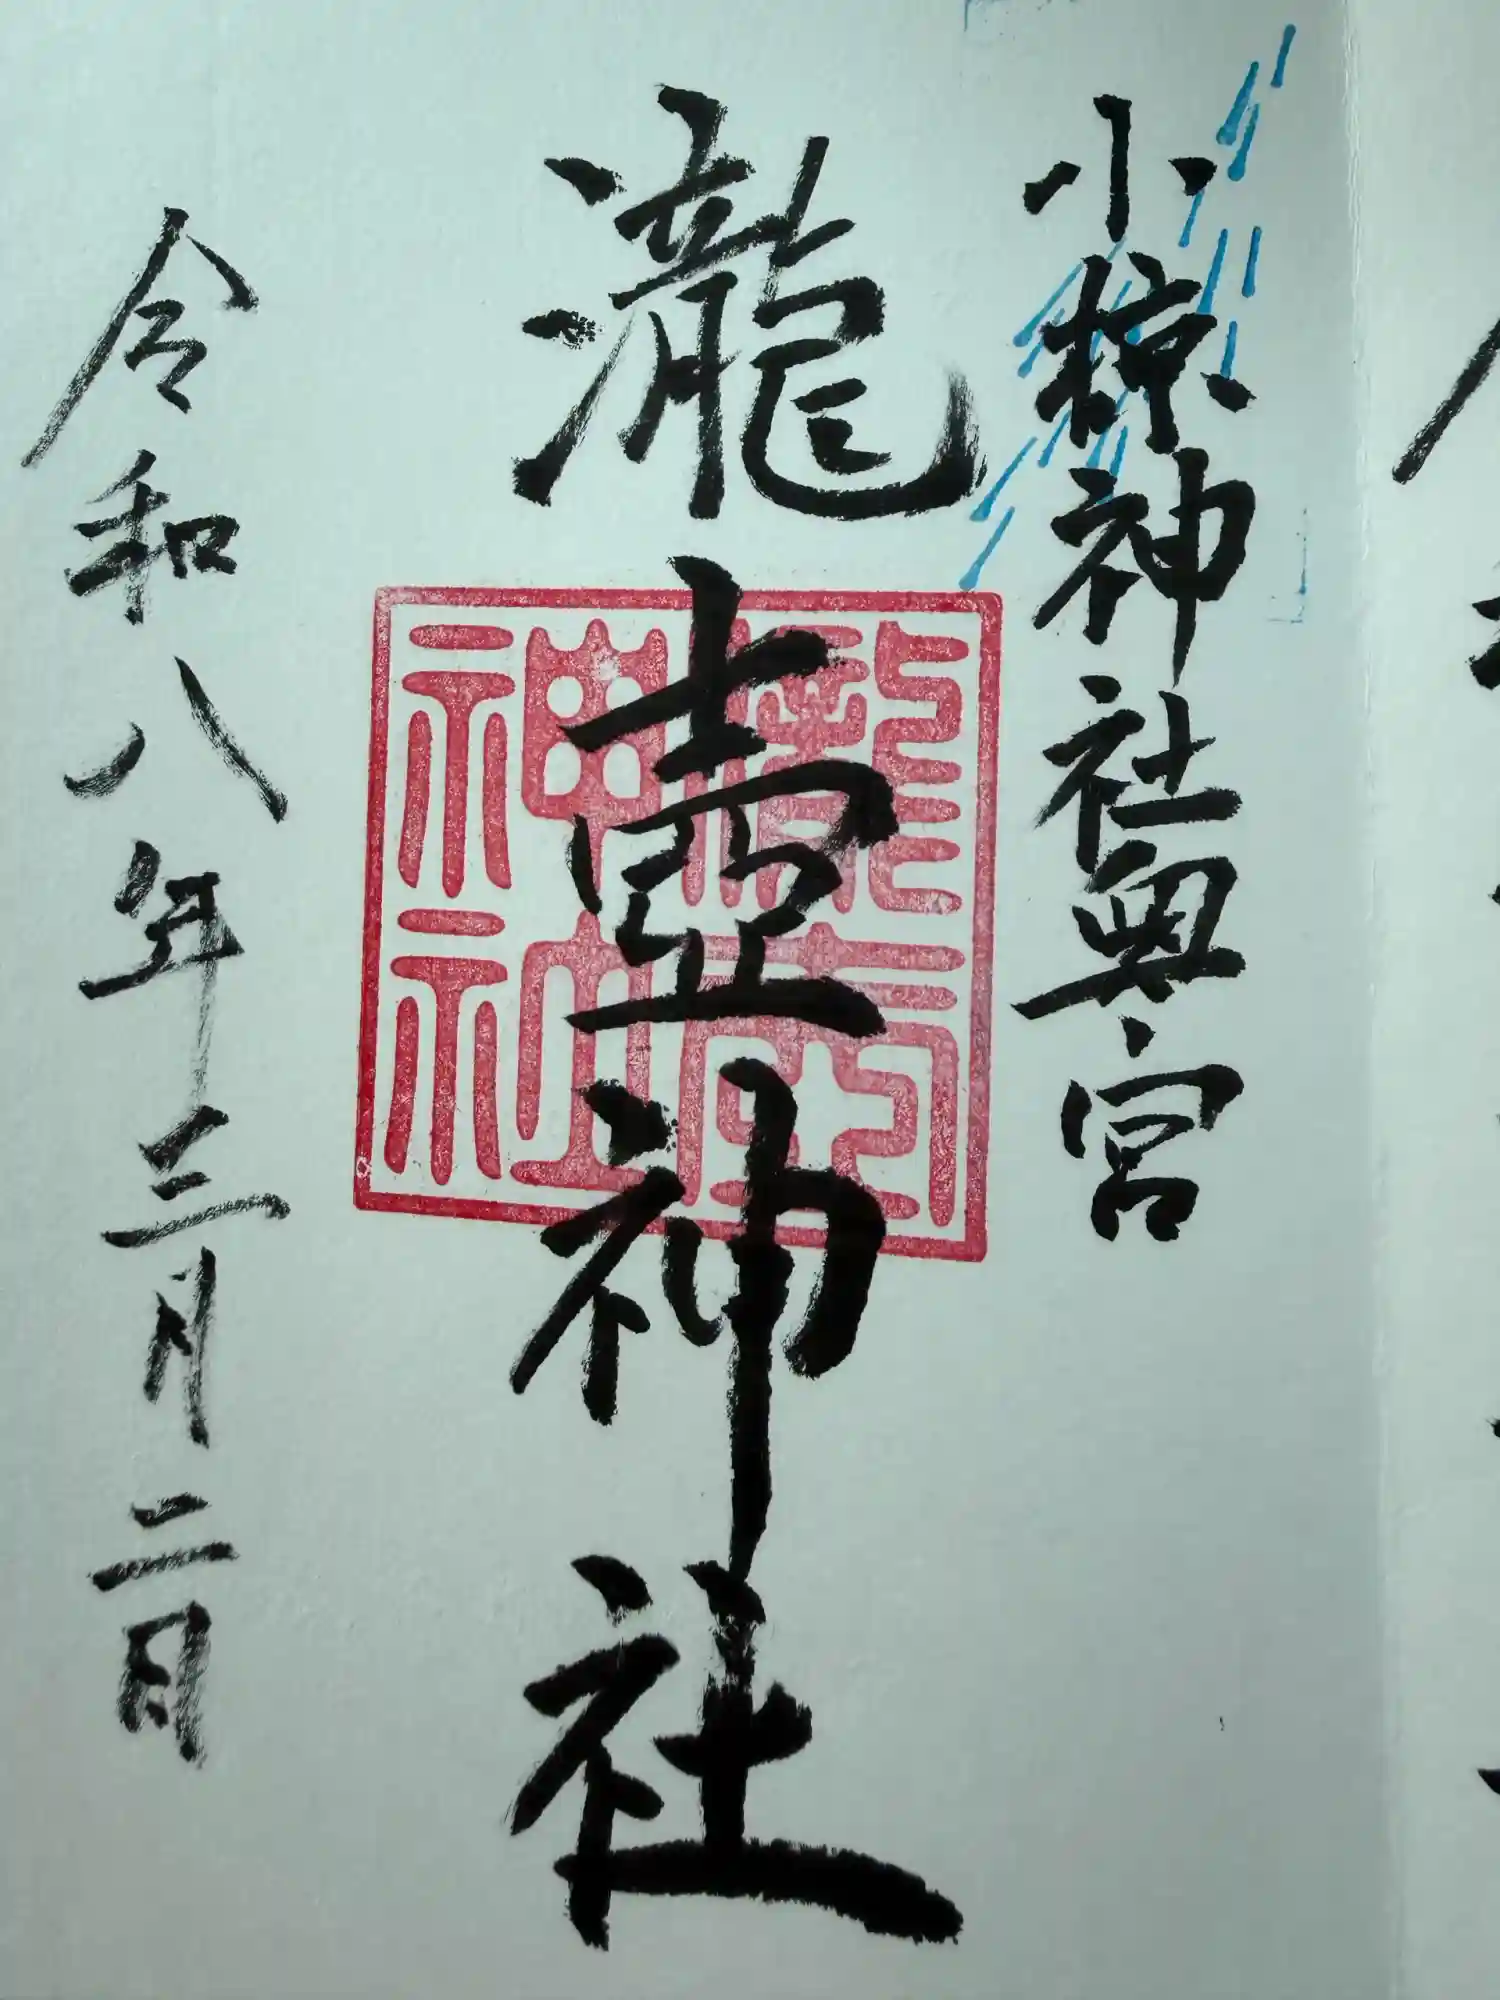 小椋神社奥宮
瀧壺神社
神社
令和八年三月二日